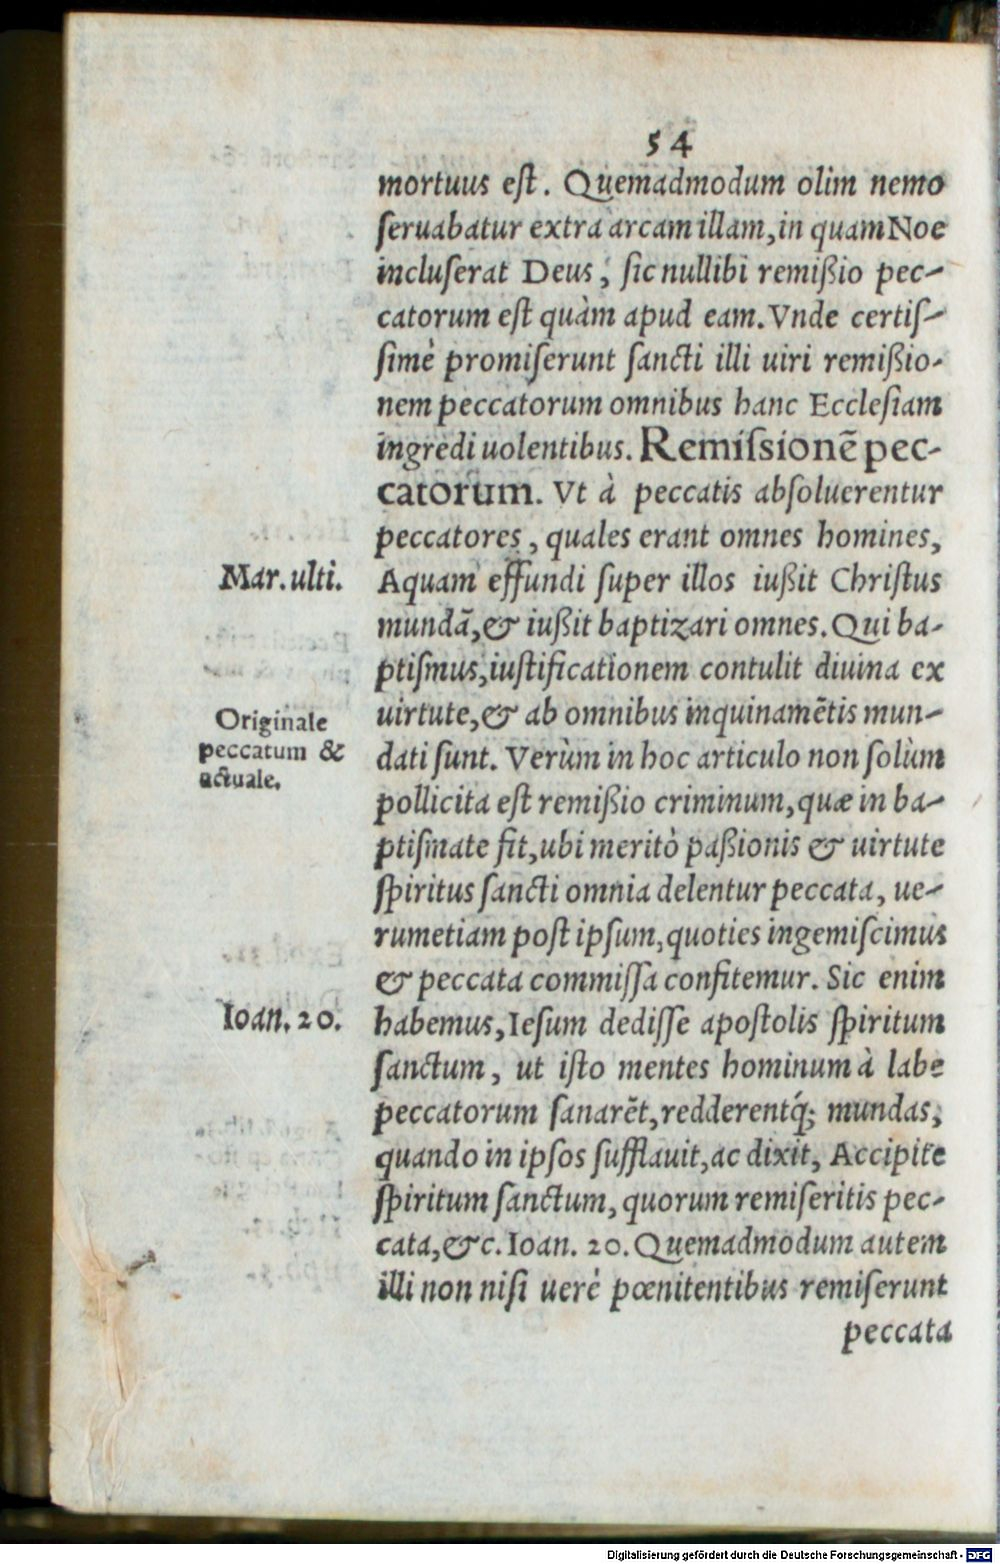 54
mortuus eſt. Quemadmodum olim nemo
ſeruabatur extra arcam illam, in quam Noe
incluſerat Deus, ſic nullibi remißio pec-
catorum eſt quàm apud eam. Vnde certiſ-
ſimè promiſerunt ſancti illi uiri remißio-
nem peccatorum omnibus hanc Eccleſiam
ingredi uolentibus. Remiſsionē pec-
catorum. Vt à peccatis abſoluerentur
peccatores, quales erant omnes homines,
Mar. ulti.
Aquam effundi ſuper illos iußit Chriſtus
mundā, & iußit baptizari omnes. Qui ba-
ptiſmus, iuſtificationem contulit diuina ex
Originale
peccatum &
actuale.
uirtute, & ab omnibus inquinamētis mun-
dati ſunt. Verùm in hoc articulo non ſolùm
pollicita eſt remißio criminum, quæ in ba-
ptiſmate fit, ubi meritò paßionis & uirtute
ſpiritus ſancti omnia delentur peccata, ue-
rumetiam poſt ipſum, quoties ingemiſcimus
& peccata commiſſa confitemur. Sic enim
Ioan. 20.
habemus, Ieſum dediſſe apoſtolis ſpiritum
ſanctum, ut iſto mentes hominum à labe
peccatorum ſanarēt, redderentq́; mundas,
quando in ipſos ſufflauit, ac dixit, Accipite
ſpiritum ſanctum, quorum remiſeritis pec-
cata, &c. Ioan. 20. Quemadmodum autem
illi non niſi uerè pœnitentibus remiſerunt
peccata
Digitalisierung gefördert durch die Deutsche Forschungsgemeinschaft - DFG